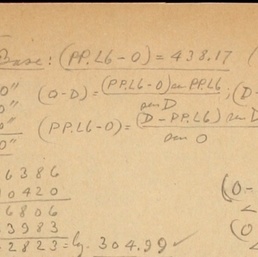 Base: (PP.L6-0) = 438.17 (
0" (0-D) = (PP.L6-0) sen PP.L6 / sen D ; (D-
0"
0" (PP.L6-0) = (D-PP.L6) sen D / sen O
6386
0420 (0-
6806
3983 (0
2823 = lg. 304.99 ✓